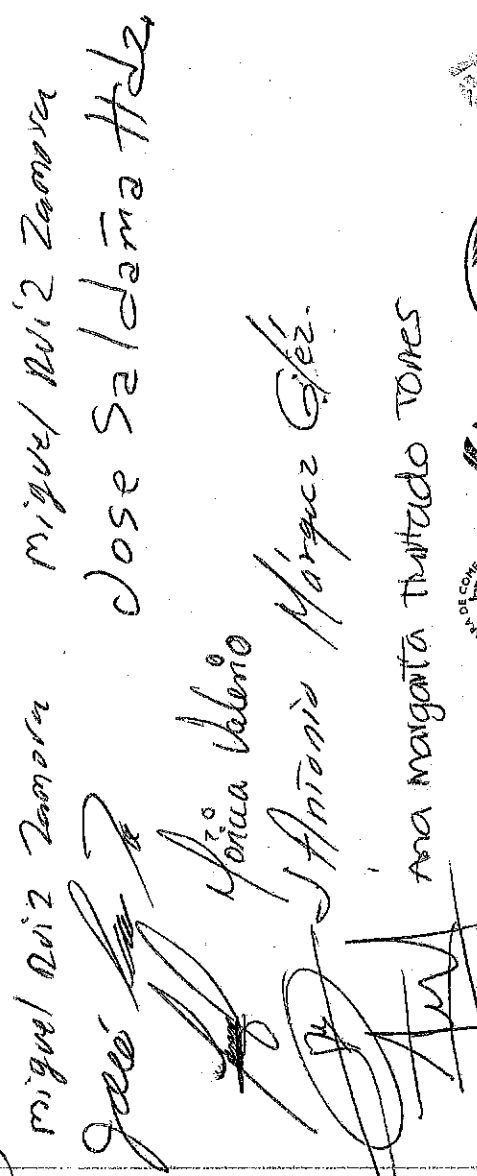 miguel Ruiz Zamora miguel Ruiz Zamora
José Jose Saldaña Hdz.
Mónica Valerio
J Antonio Márquez Glez.
Ana Margarita Hurtado Torres